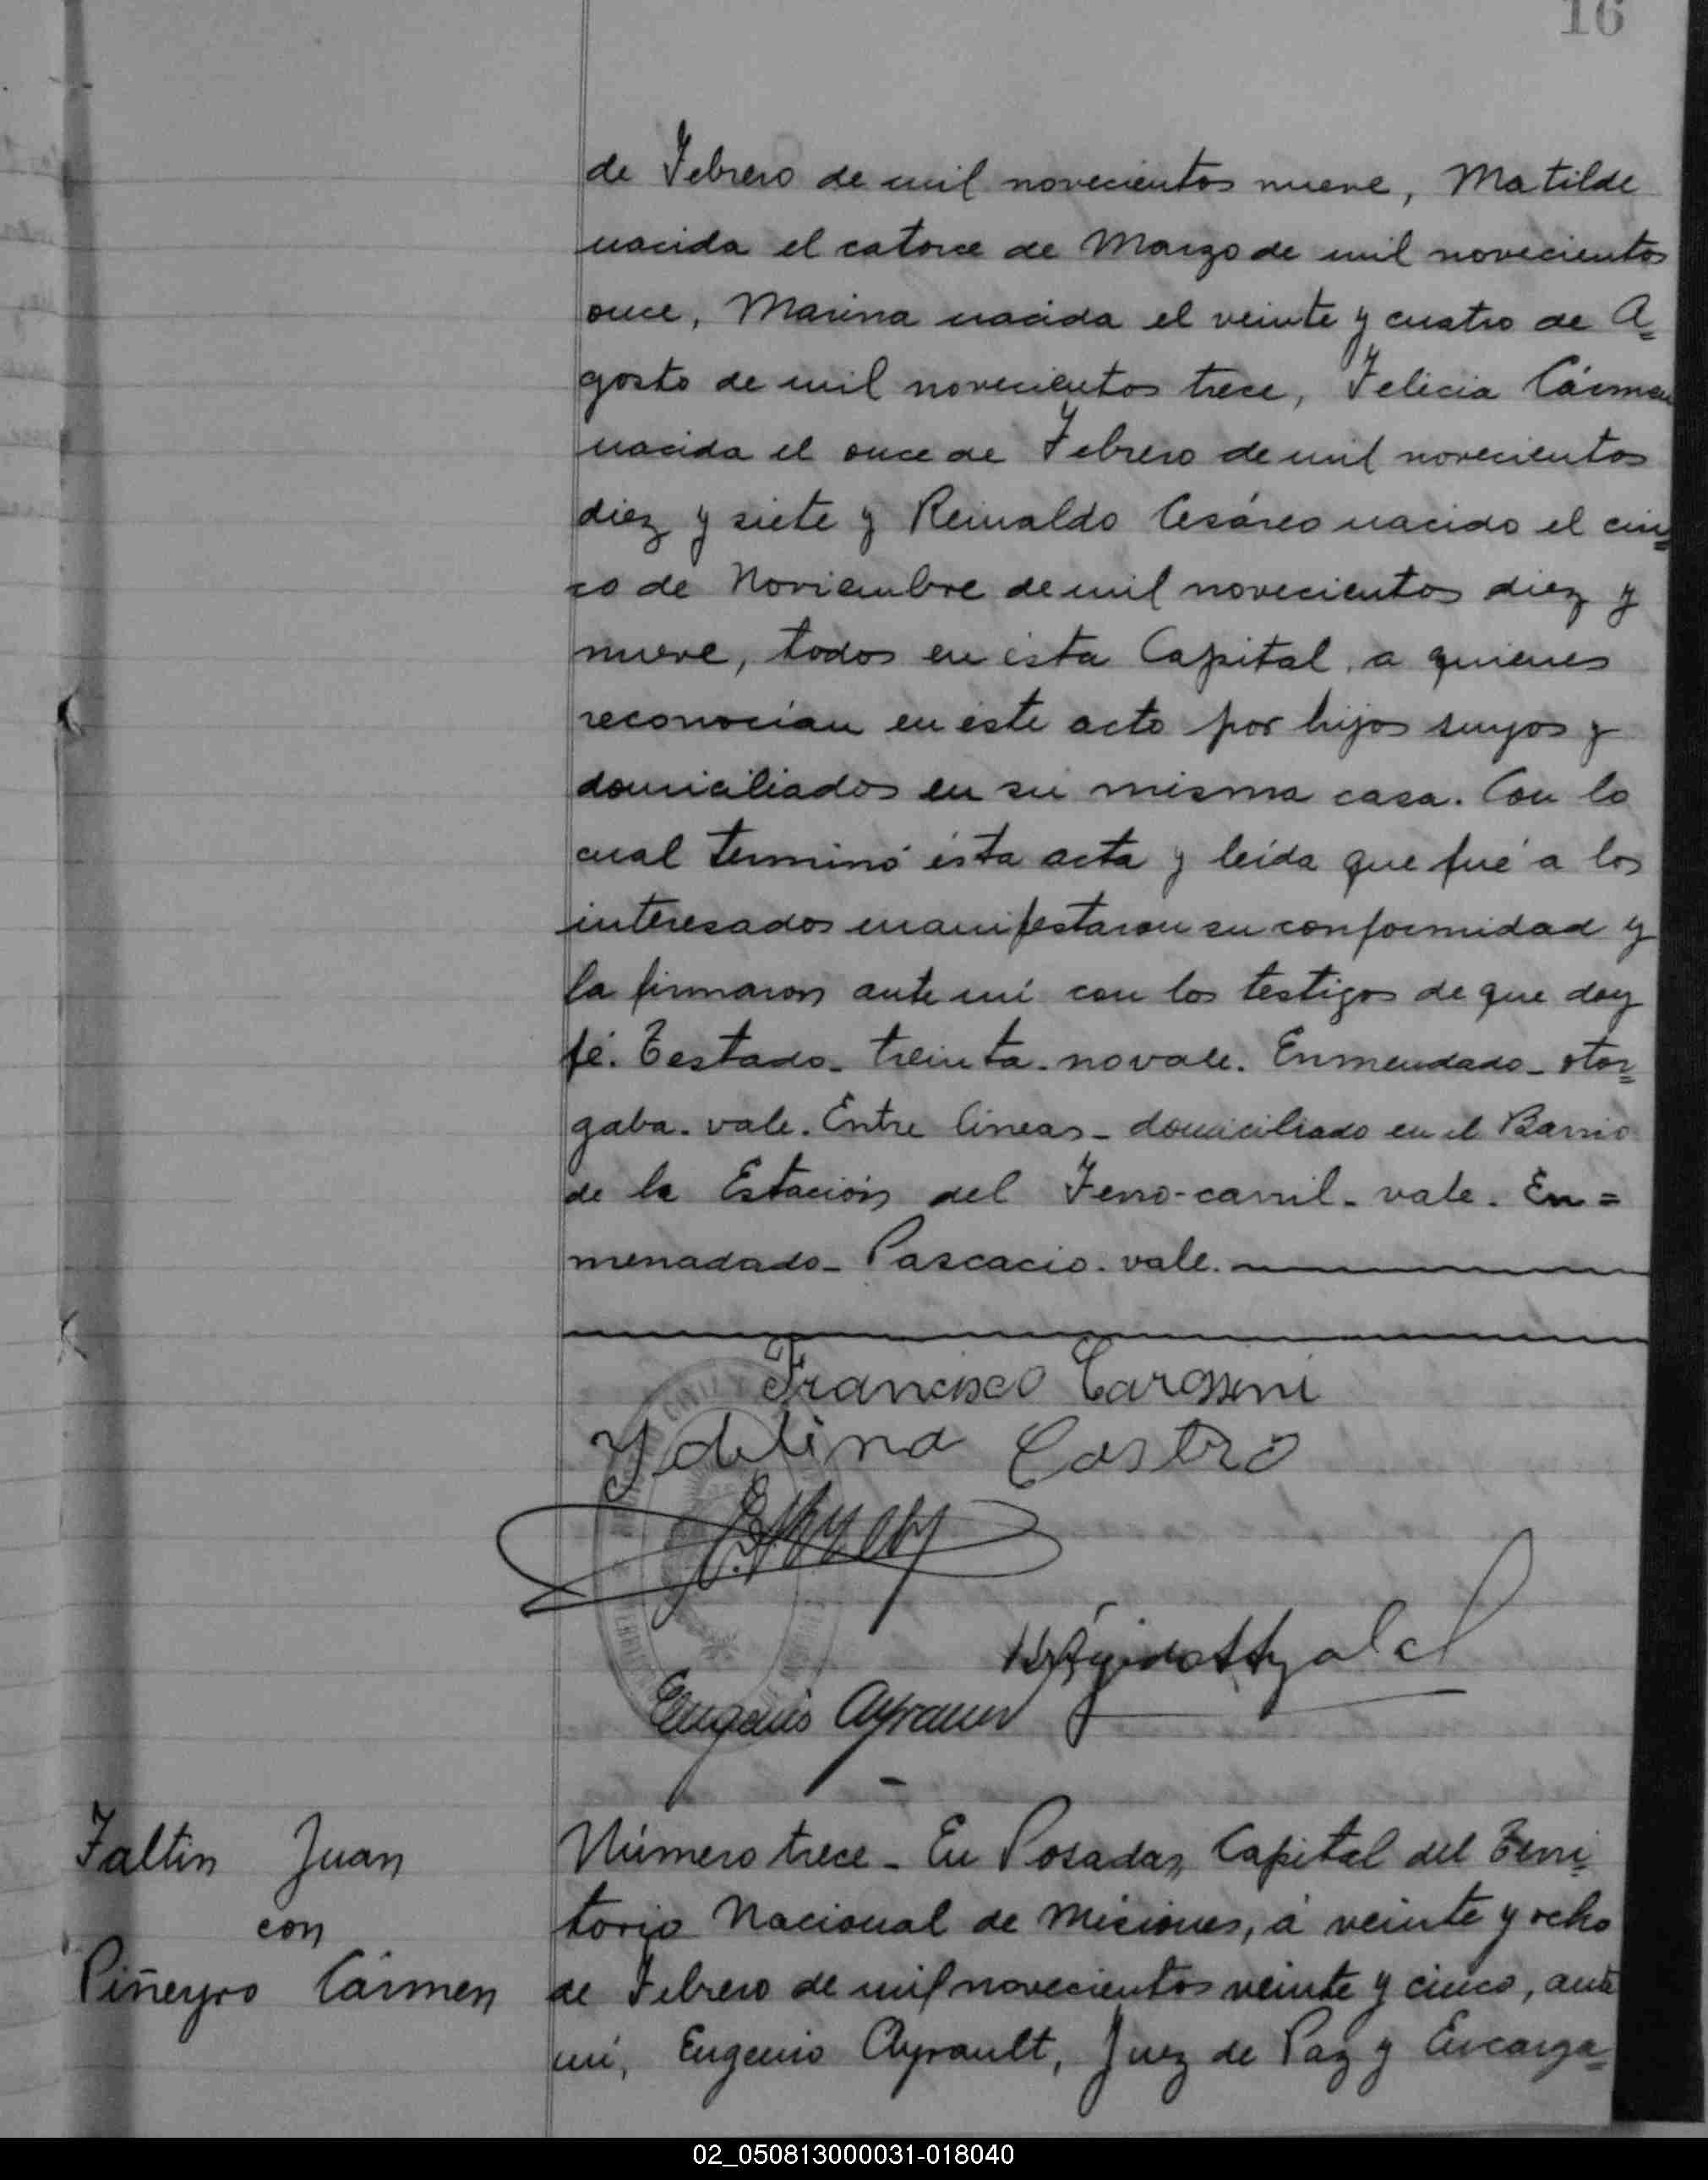 16
de Febrero de mil novecientos nueve, Matilde
nacida el catorce de Marzo de mil novecientos
once, Marina nacida el veinte y cuatro de A=
gosto de mil novecientos trece, Felicia Cármen
nacida el once de Febrero de mil novecientos
diez y siete y Reinaldo Cesáreo nacido el cin=
co de Noviembre de mil novecientos diez y
nueve, todos en ésta Capital, a quienes
reconocían en éste acto por hijos suyos y
domiciliados en su misma casa. Con lo
cual terminó ésta acta y leída que fué a los
interesados manifestaron su conformidad y
la firmaron ante mí con los testigos de que doy
fé. Testado- treinta- no vale. Enmendado- otor=
gaba- vale. Entre lineas- domiciliado en el Barrio
de la Estación del Ferro-carril- vale. En=
menadado- Pascacio- vale.
Francisco
Ydelina Castro
Eugenio Ayrault
Faltin Juan
con
Piñeyro Cármen
Número trece- En Posadas, Capital del Terri=
torio Nacional de Misiones, á veinte y ocho
de Febrero de mil novecientos veinte y cinco, ante
mí, Eugenio Ayrault, Juez de Paz y Encarga=
02_050813000031-018040